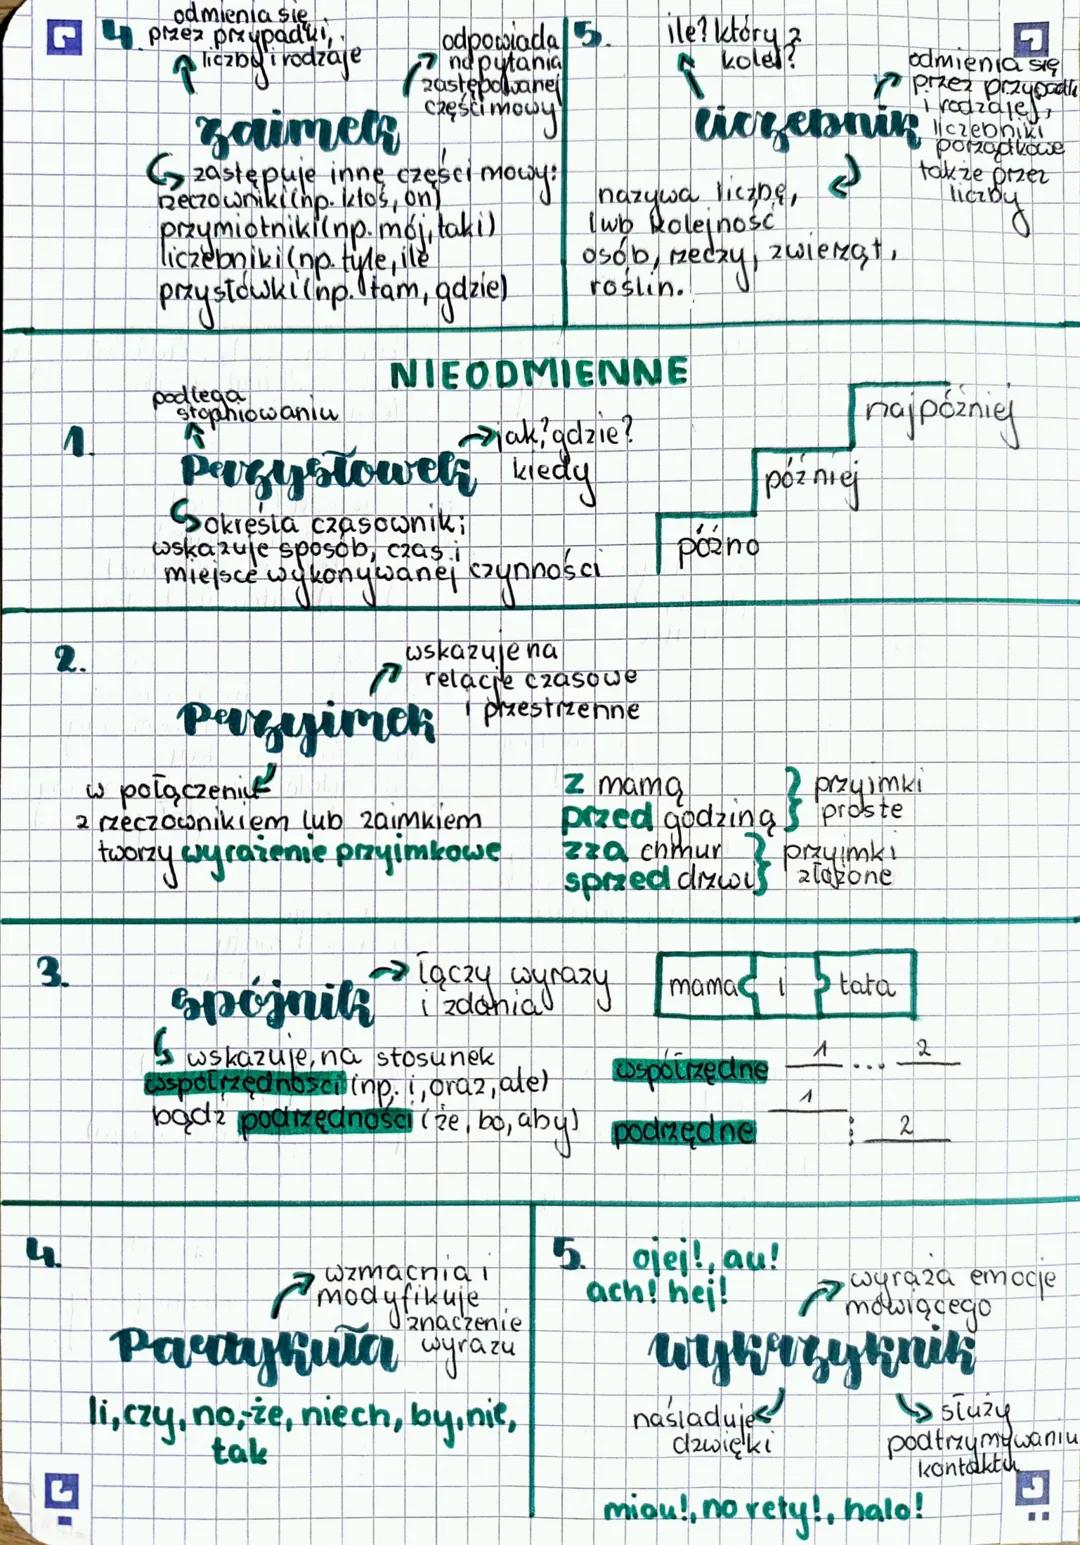 4. odmienia się
przez przypadki,
liczby i rodzaje
odpowiada
na pytania
zastępowanej
części mowy
zaimek
zastępuje inne części mowy:
rzeczowniki (np. ktoś, on)
przymiotniki (np. mój, taki)
liczebniki (np. tyle, ile
przysłówki (np. tam, gdzie)
5. ile? który z
kolei?
odmienia się
przez przypadki
i rodzaje,
liczebniki
porządkowe
także przez
liczby
liczebnik
nazywa liczbę,
lub kolejność
osób, rzeczy, zwierząt,
roślin.
NIEODMIENNE
1.
podlega
stopniowaniu
jak? gdzie?
kiedy
Przysłówek
określa czasownik;
wskazuje sposób, czas i
miejsce wykonywanej czynności
najpóźniej
później
późno
2.
wskazuje na
relacje czasowe
i przestrzenne
Przyimek
w połączeniu
z rzeczownikiem lub zaimkiem
tworzy wyrażenie przyimkowe
z mamą
przed godziną
przyimki
proste
zza chmur
sprzed drzwi
przyimki
złożone
3.
łączy wyrazy
i zdania
spójnik
wskazuje na stosunek
współrzędności (np. i, oraz, ale)
bądź podrzędności (że, bo, aby)
mama i tata
współrzędne 1 ... 2
podrzędne 1
2
4.
wzmacnia i
modyfikuje
znaczenie
wyrazu
Partykuła
li, czy, no, -że, niech, by, nie,
tak
5. ojej!, au!
ach! hej!
wyraża emocje
mówiącego
wykrzyknik
naśladuje
dźwięki
służy
podtrzymywaniu
kontaktu
miau!, no rety!, halo!